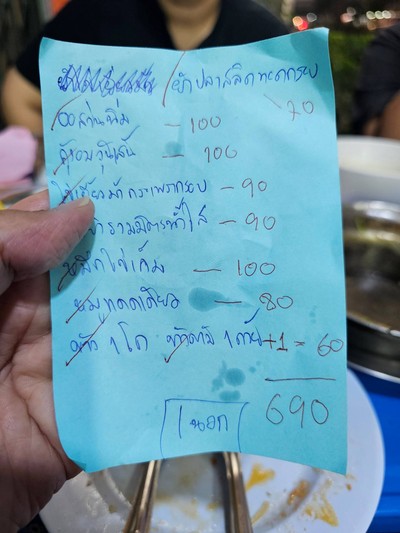 ยำปลาสลิดทอดกรอบ
70
ออส่วนนิ่ม - 100
กุ้งอบวุ้นเส้น - 100
ไข่เยี่ยวม้ากระเพรากรอบ - 90
ยำรวมมิตรทั่วไส้ - 90
หมึกไข่เค็ม - 100
หมูทอดแดดเดียว - 80
ข้าว 1 โถ 1 ถ้วย +1 = 60
690
1 นอก